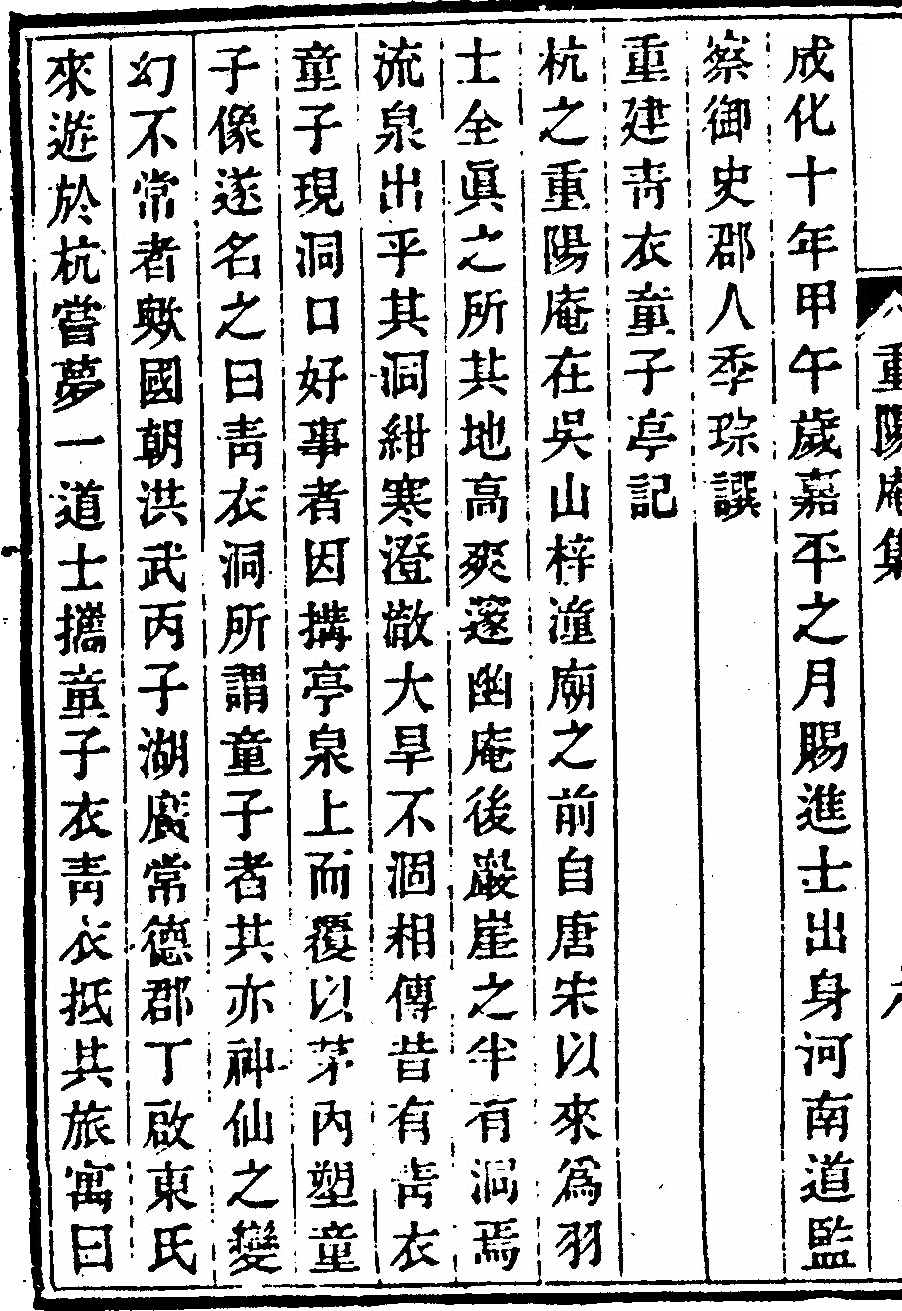 重陽庵集
成化十年甲午歲嘉平之月賜進士出身河南道監
察御史郡人季琮譔
重建青衣童子亭記
杭之重陽庵在吳山梓潼廟之前自唐宋以來爲羽
士全眞之所其地高爽邃幽庵後巖崖之半有洞焉
流泉出乎其洞紺寒澄澈大旱不涸相傳昔有青衣
童子現洞口好事者因搆亭泉上而覆以茅內塑童
子像遂名之曰靑衣洞所謂童子者其亦神仙之變
幻不常者歟國朝洪武丙子湖廣常德郡丁啟東氏
來遊於杭嘗夢一道士攜童子衣靑衣抵其旅寓曰